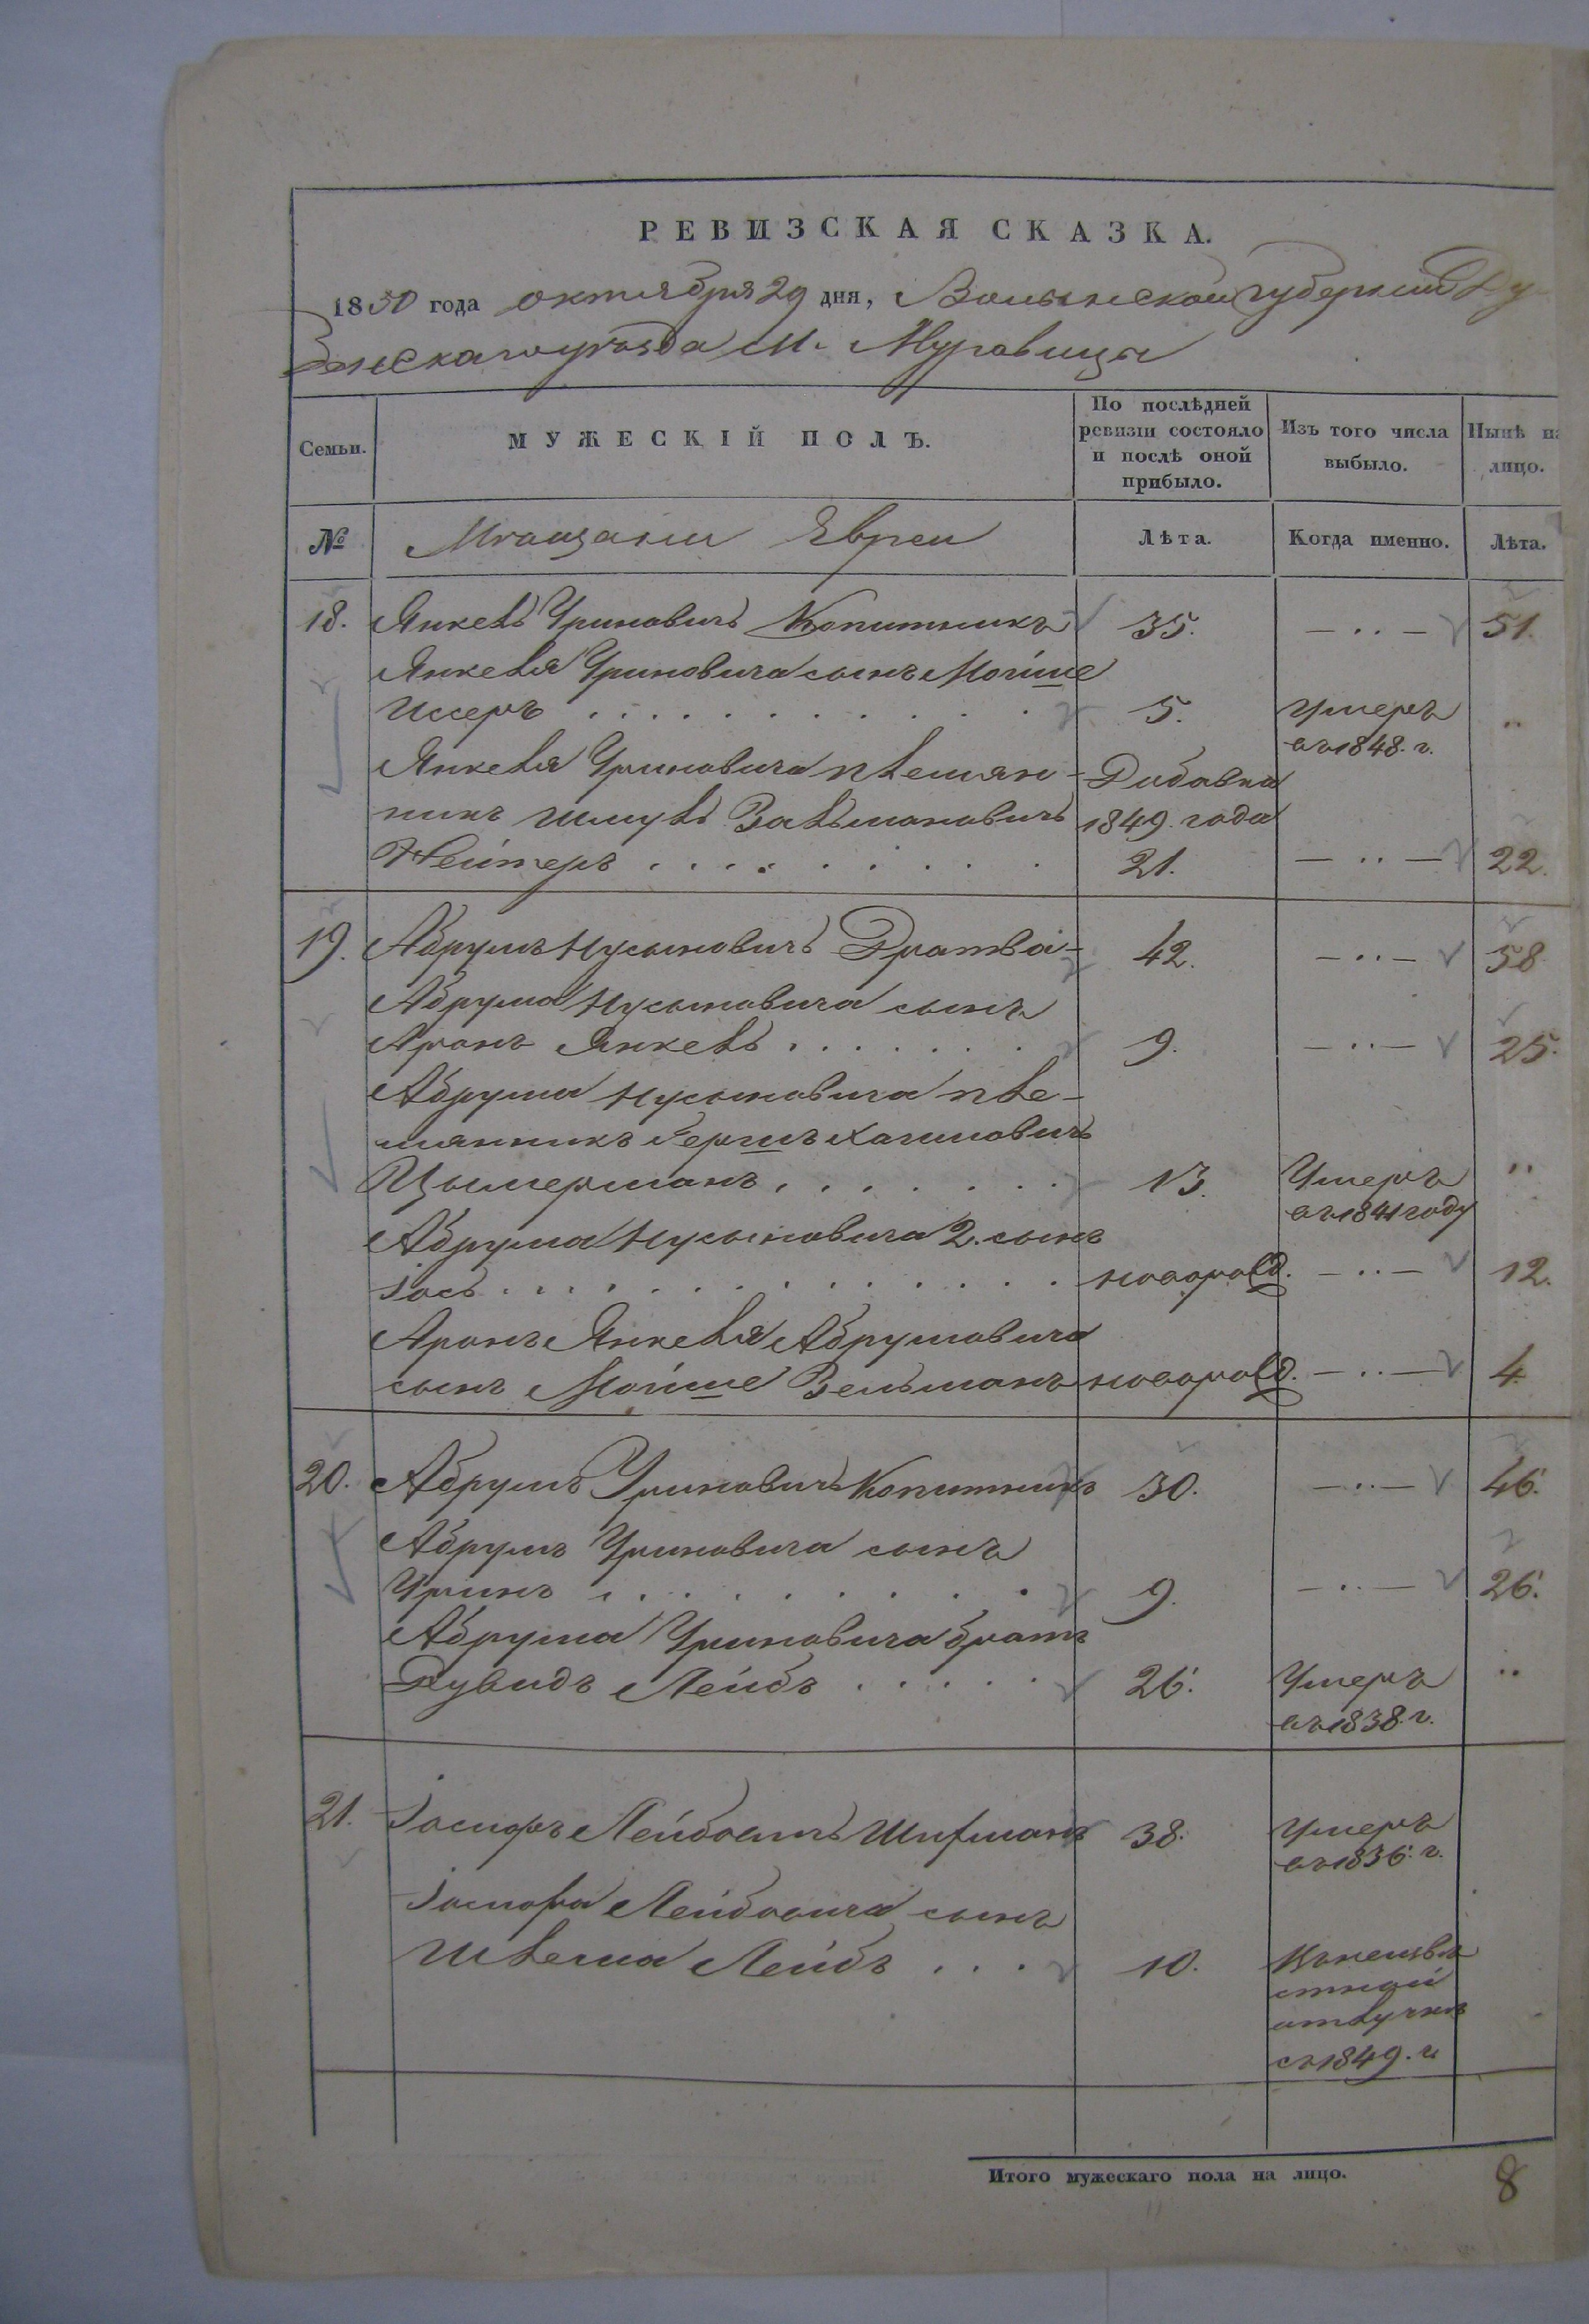 РЕВИЗСКАЯ СКАЗКА.
1850 года октября 29 дня, Волынской губернии Ду
бенскаго уѣзда М. Муравицы
Семьи.
МУЖЕСКІЙ ПОЛЪ.
По послѣдней ревизіи состояло и послѣ оной прибыло.
Изъ того числа выбыло.
Нынѣ на лицо.
№ Мѣщани Явреи Лѣта. Когда именно. Лѣта.
18. Янкель Уриновичъ Копитникъ 35. — .. — 51.
Янкеля Уриновича сынъ Мойше
Иссеръ . . . . . . . . . 5. Умеръ ..
въ 1848. г.
Янкеля Уриновича племян- Добавка
никъ Шмуль Зальмановичъ 1849. года
Нейтеръ . . . . . . . . . 21. — .. — 22.
19. Абрумъ Нусыновичъ Дратва- 42. — .. — 58
Абрума Нусыновича сынъ
Аронъ Янкель . . . . . . . 9. — .. — 25.
Абрума Нусыновича пле-
мянникъ Гершъ Хаимовичъ
Цымерманъ . . . . . . . 13. Умеръ ..
въ 1841 году
Абрума Нусыновича 2. сынъ
Іось . . . . . . . . . . . . новорожд. — .. — 12.
Аронъ Янкеля Абрумовича
сынъ Мойше Зельманъ новорожд. — .. — 4.
20. Абрумъ Уриновичъ Копитникъ 30. — .. — 46.
Абрумъ Уриновича сынъ
Уринъ . . . . . . . . . 9. — .. — 26.
Абрума Уриновича братъ
Дувидъ Лейбъ . . . . . 26. Умеръ ..
въ 1838. г.
21. Іосифъ Лейбовичъ Шифманъ 38. Умеръ
въ 1836. г.
Лейбовича сынъ
Шлема Лейбъ . . . 10. Въ неизвѣ
стной
отлучкѣ
съ 1849. г.
Итого мужескаго пола на лицо. 8